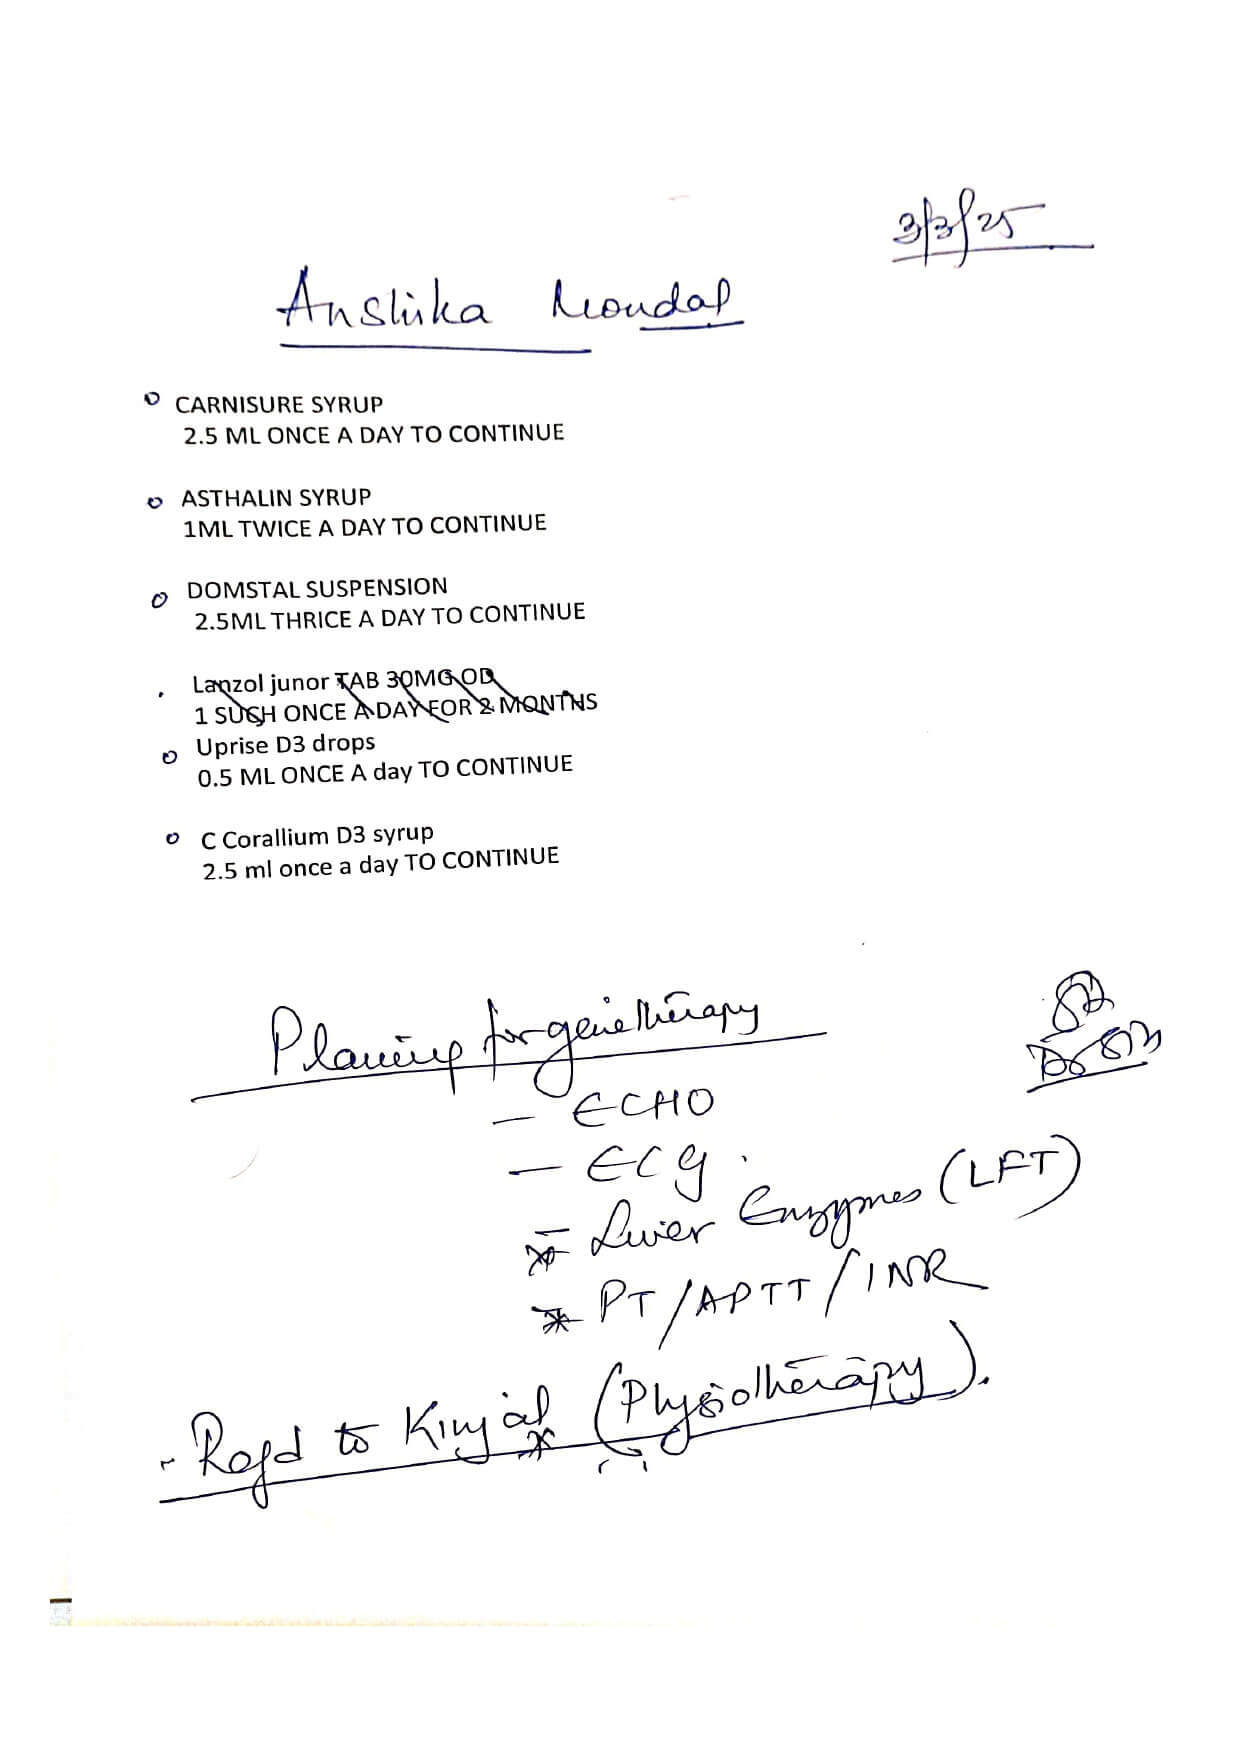 3/3/25
Anshika Mondal
CARNISURE SYRUP
2.5 ML ONCE A DAY TO CONTINUE
ASTHALIN SYRUP
1ML TWICE A DAY TO CONTINUE
DOMSTAL SUSPENSION
2.5ML THRICE A DAY TO CONTINUE
Lanzol junor TAB 30MG OD
1 SUCH ONCE A DAY FOR 2 MONTHS
Uprise D3 drops
0.5 ML ONCE A day TO CONTINUE
C Corallium D3 syrup
2.5 ml once a day TO CONTINUE
Planing for genetherapy
- ECHO
- ECG
Liver Enzymes (LFT)
* PT/APTT/INR
- Refd to Kinjal (Physiotherapy).